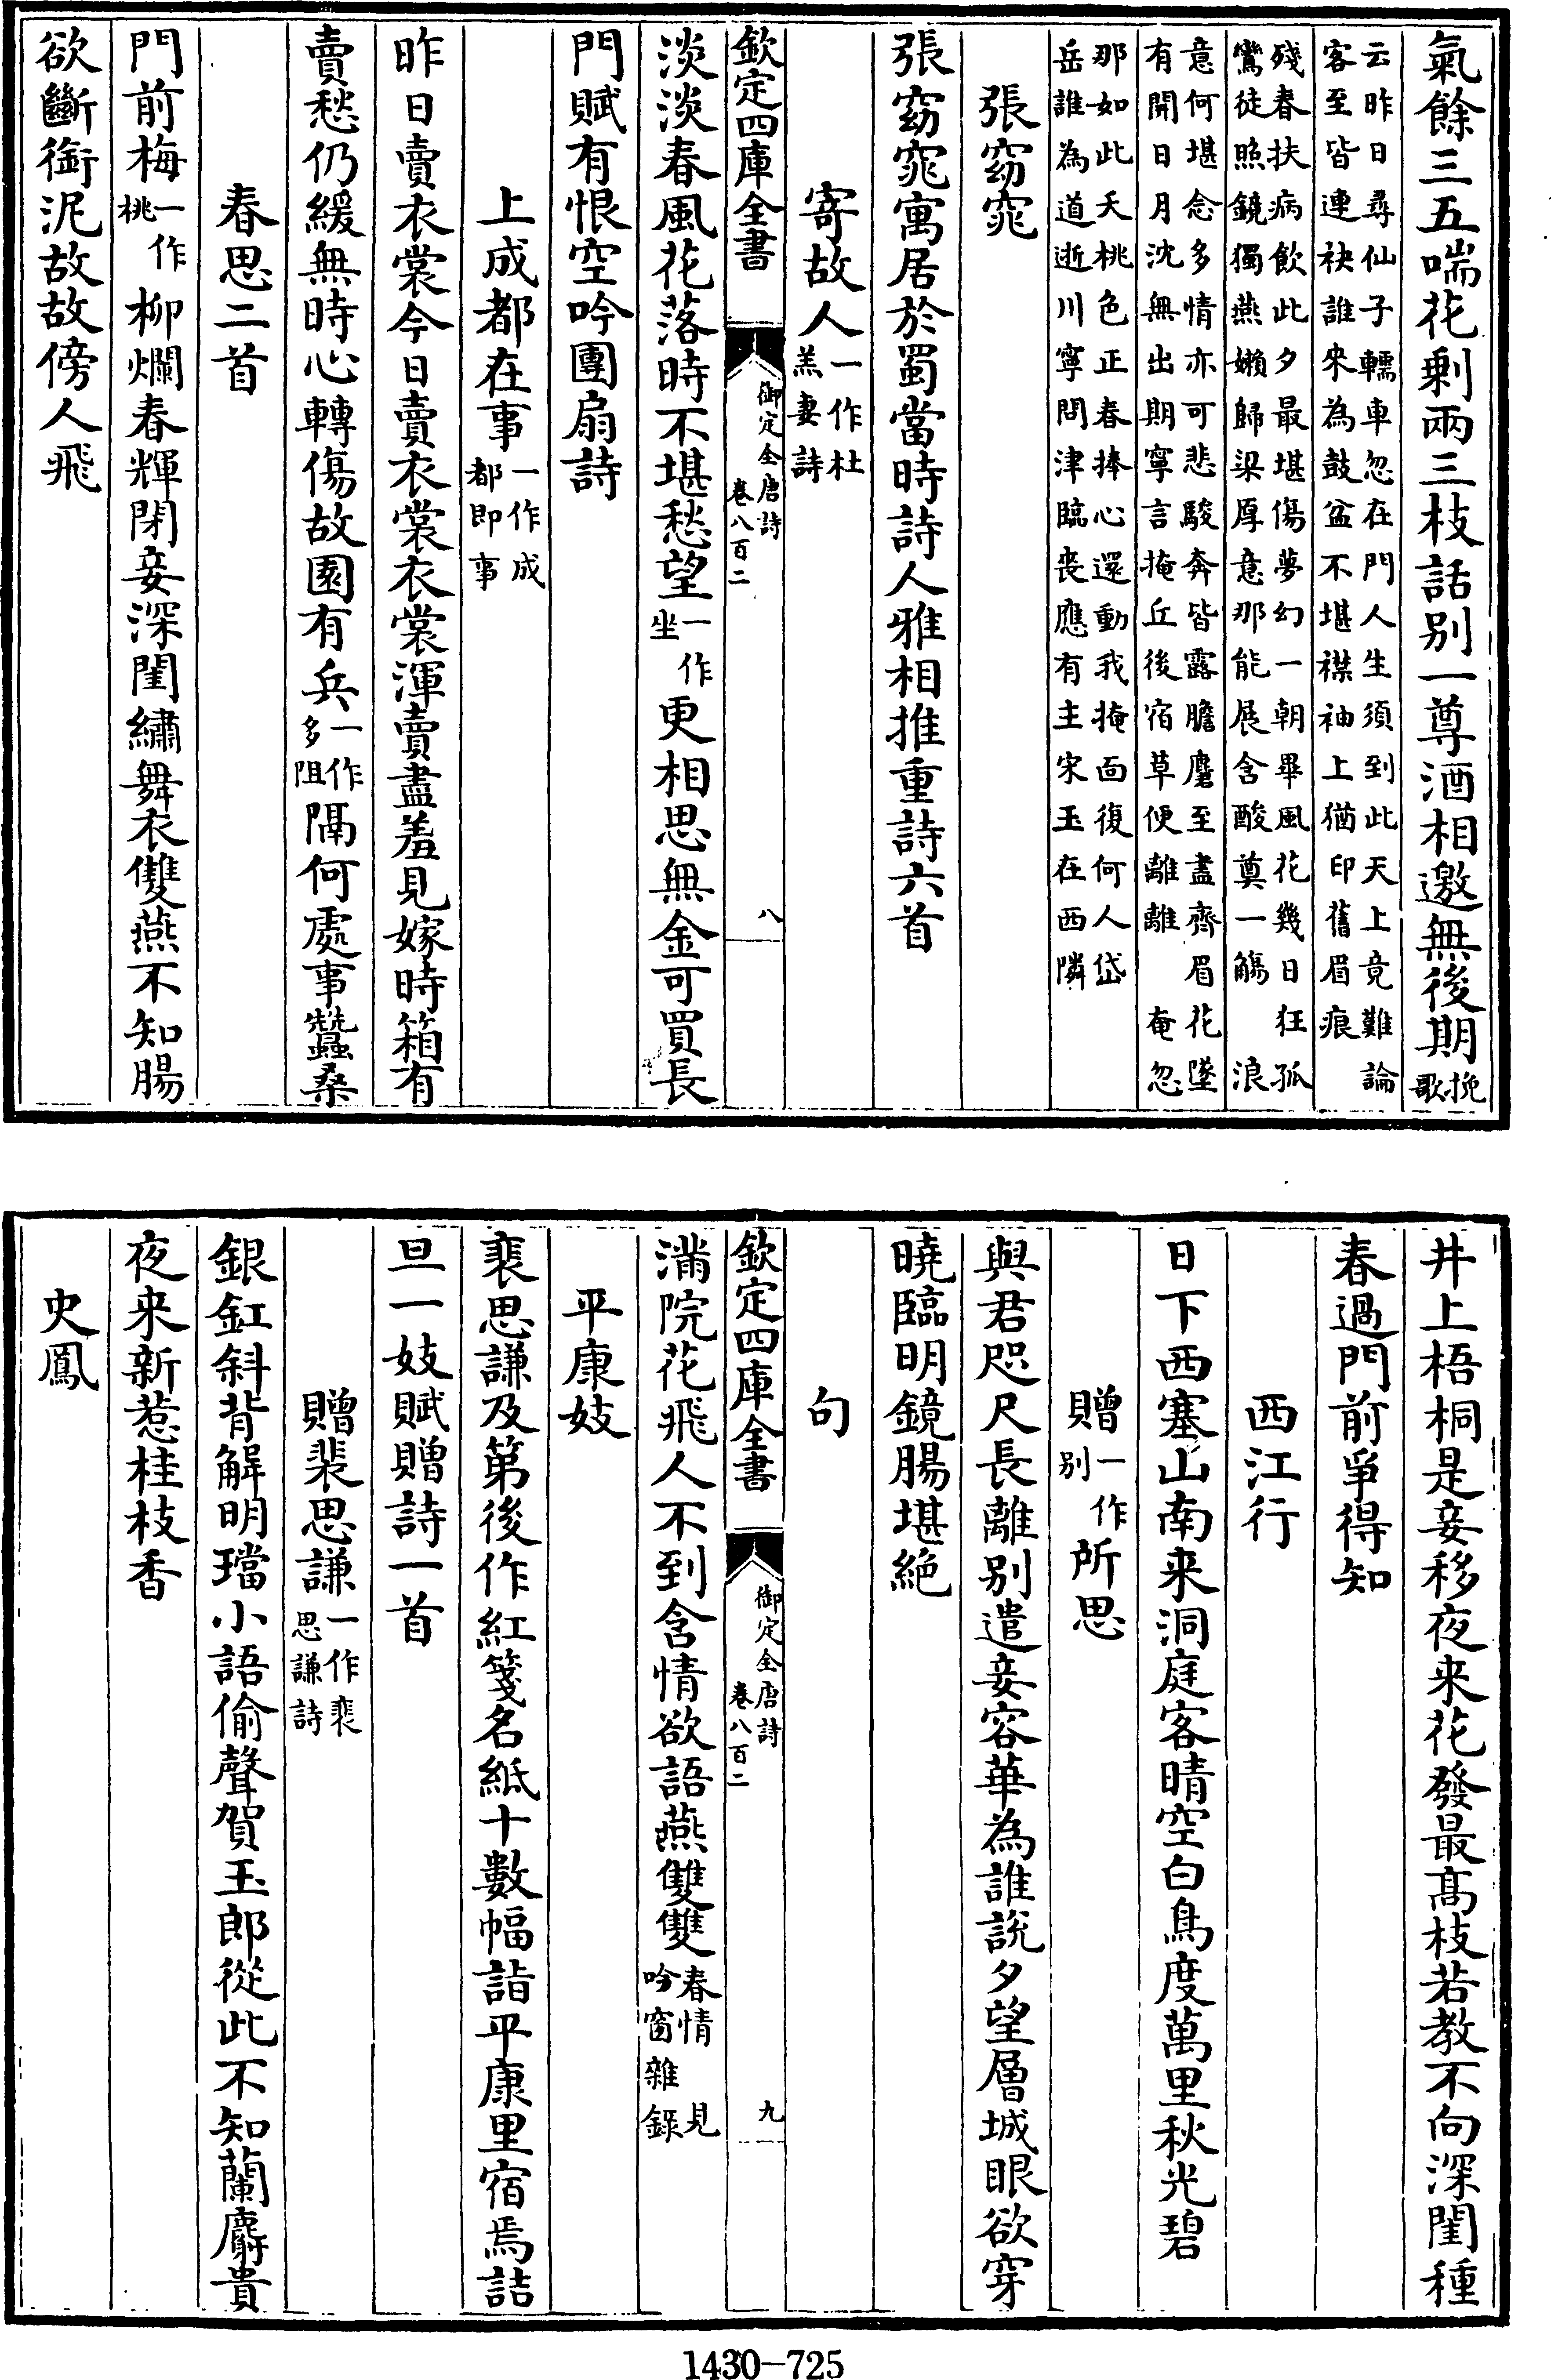 氣餘三五喘花剩兩三枝話别一尊酒相邀無後期挽歌
云昨日尋仙子轜車忽在門人生須到此天上竟難論
客至皆連袂誰来為鼓盆不堪襟袖上猶印舊眉痕
殘春扶病飲此夕最堪傷夢幻一朝畢風花幾日狂孤
鸞徒照鏡獨燕嬾歸梁厚意那能展含酸奠一觴 浪
意何堪念多情亦可悲駿奔皆露膽麏至盡齊眉花墜
有開日月沈無出期寧言掩丘後宿草便離離 奄忽
那如此夭桃色正春捧心還動我掩面復何人岱
岳誰為道逝川寧問津臨喪應有主宋玉在西隣
張窈窕
張窈窕寓居於蜀當時詩人雅相推重詩六首
寄故人一作杜羔妻詩
欽定四庫全書 御定全唐詩 卷八百二 八
淡淡春風花落時不堪愁望一作坐更相思無金可買長
門賦有恨空吟團扇詩
上成都在事一作成都即事
昨日賣衣裳今日賣衣裳衣裳渾賣盡羞見嫁時箱有
賣愁仍緩無時心轉傷故園有兵一作多阻隔何處事蠶桑
春思二首
門前梅一作桃柳爛春輝閉妾深閨繡舞衣雙燕不知腸
欲斷銜泥故故傍人飛
井上梧桐是妾移夜来花發最髙枝若教不向深閨種
春過門前爭得知
西江行
日下西塞山南来洞庭客晴空白鳥度萬里秋光碧
贈一作别所思
與君咫尺長離别遣妾容華為誰說夕望層城眼欲穿
曉臨明鏡腸堪絶
句
欽定四庫全書 御定全唐詩 卷八百二 九
滿院花飛人不到含情欲語燕雙雙春情 見吟窗雜録
平康妓
裴思謙及第後作紅箋名紙十數幅詣平康里宿焉詰
旦一妓賦贈詩一首
贈裴思謙一作裴思謙詩
銀缸斜背解明璫小語偷聲賀玉郎從此不知蘭麝貴
夜来新惹桂枝香
史鳳
1430—725